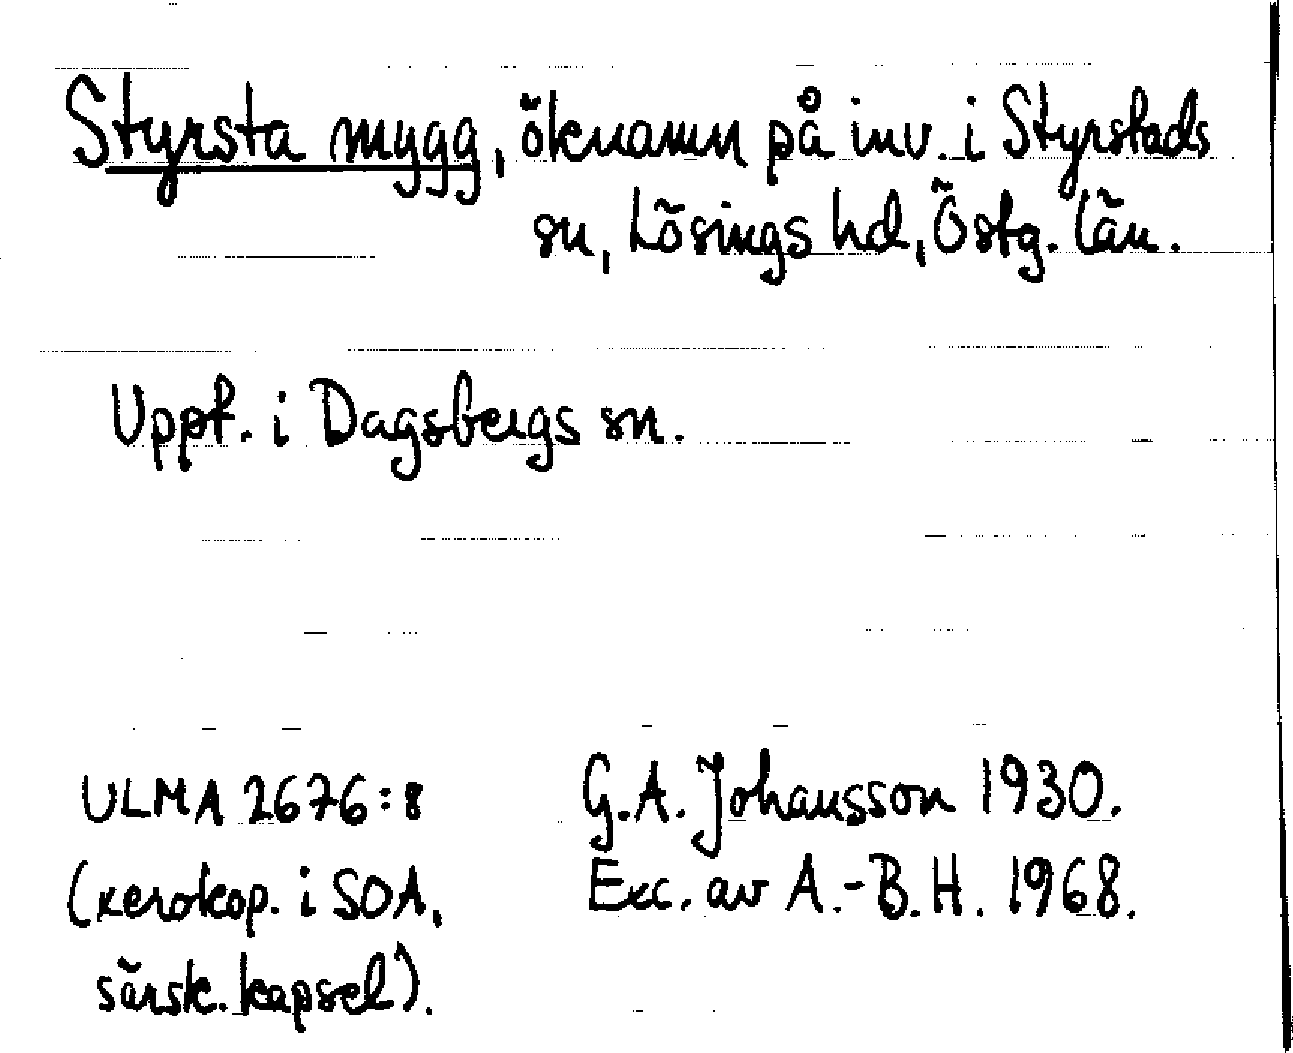 Styrsta mygg, öknamn på inv. i Styrstads
sn, Lösings hd, Östg. län.
Uppt. i Dagsbergs sn.
ULMA 2676:8
(xerokop. i SOA,
särsk. kapsel).
G.A. Johansson 1930.
Exc. av A.-B.H. 1968.